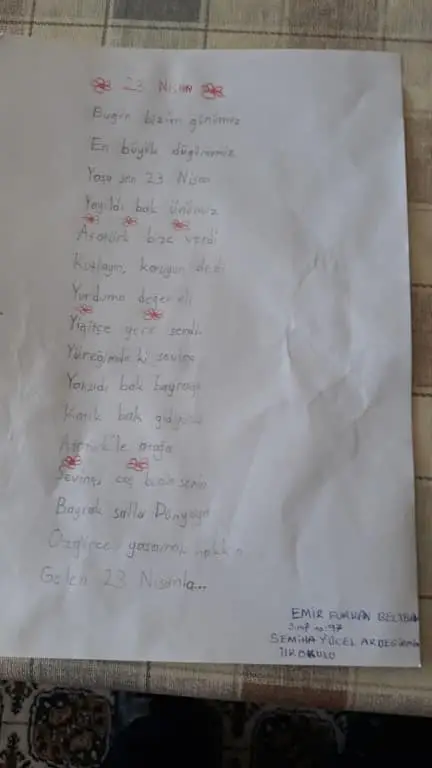 23 Nisan
Bugün bizim günümüz
En büyük düğünümüz
Yaşa sen 23 Nisan
Yayıldı bak ünümüz
Atatürk bize verdi
Kutlayın, koruyun dedi
Yurduma değer eli
Yiğitçe yere serdi
Yüreğimde ki sevinç
Yansıdı bak bayrağa
Katık bak
Atatürk'le ortağa
Sevinç, coş bizim senin
Bayrak salla Dünyaya
Özgürce yaşamak hakkın
Gelen 23 Nisanla...
EMİR FURKAN
Sınıf no: 97
SEMİHA YÜCEL
İLKOKULU